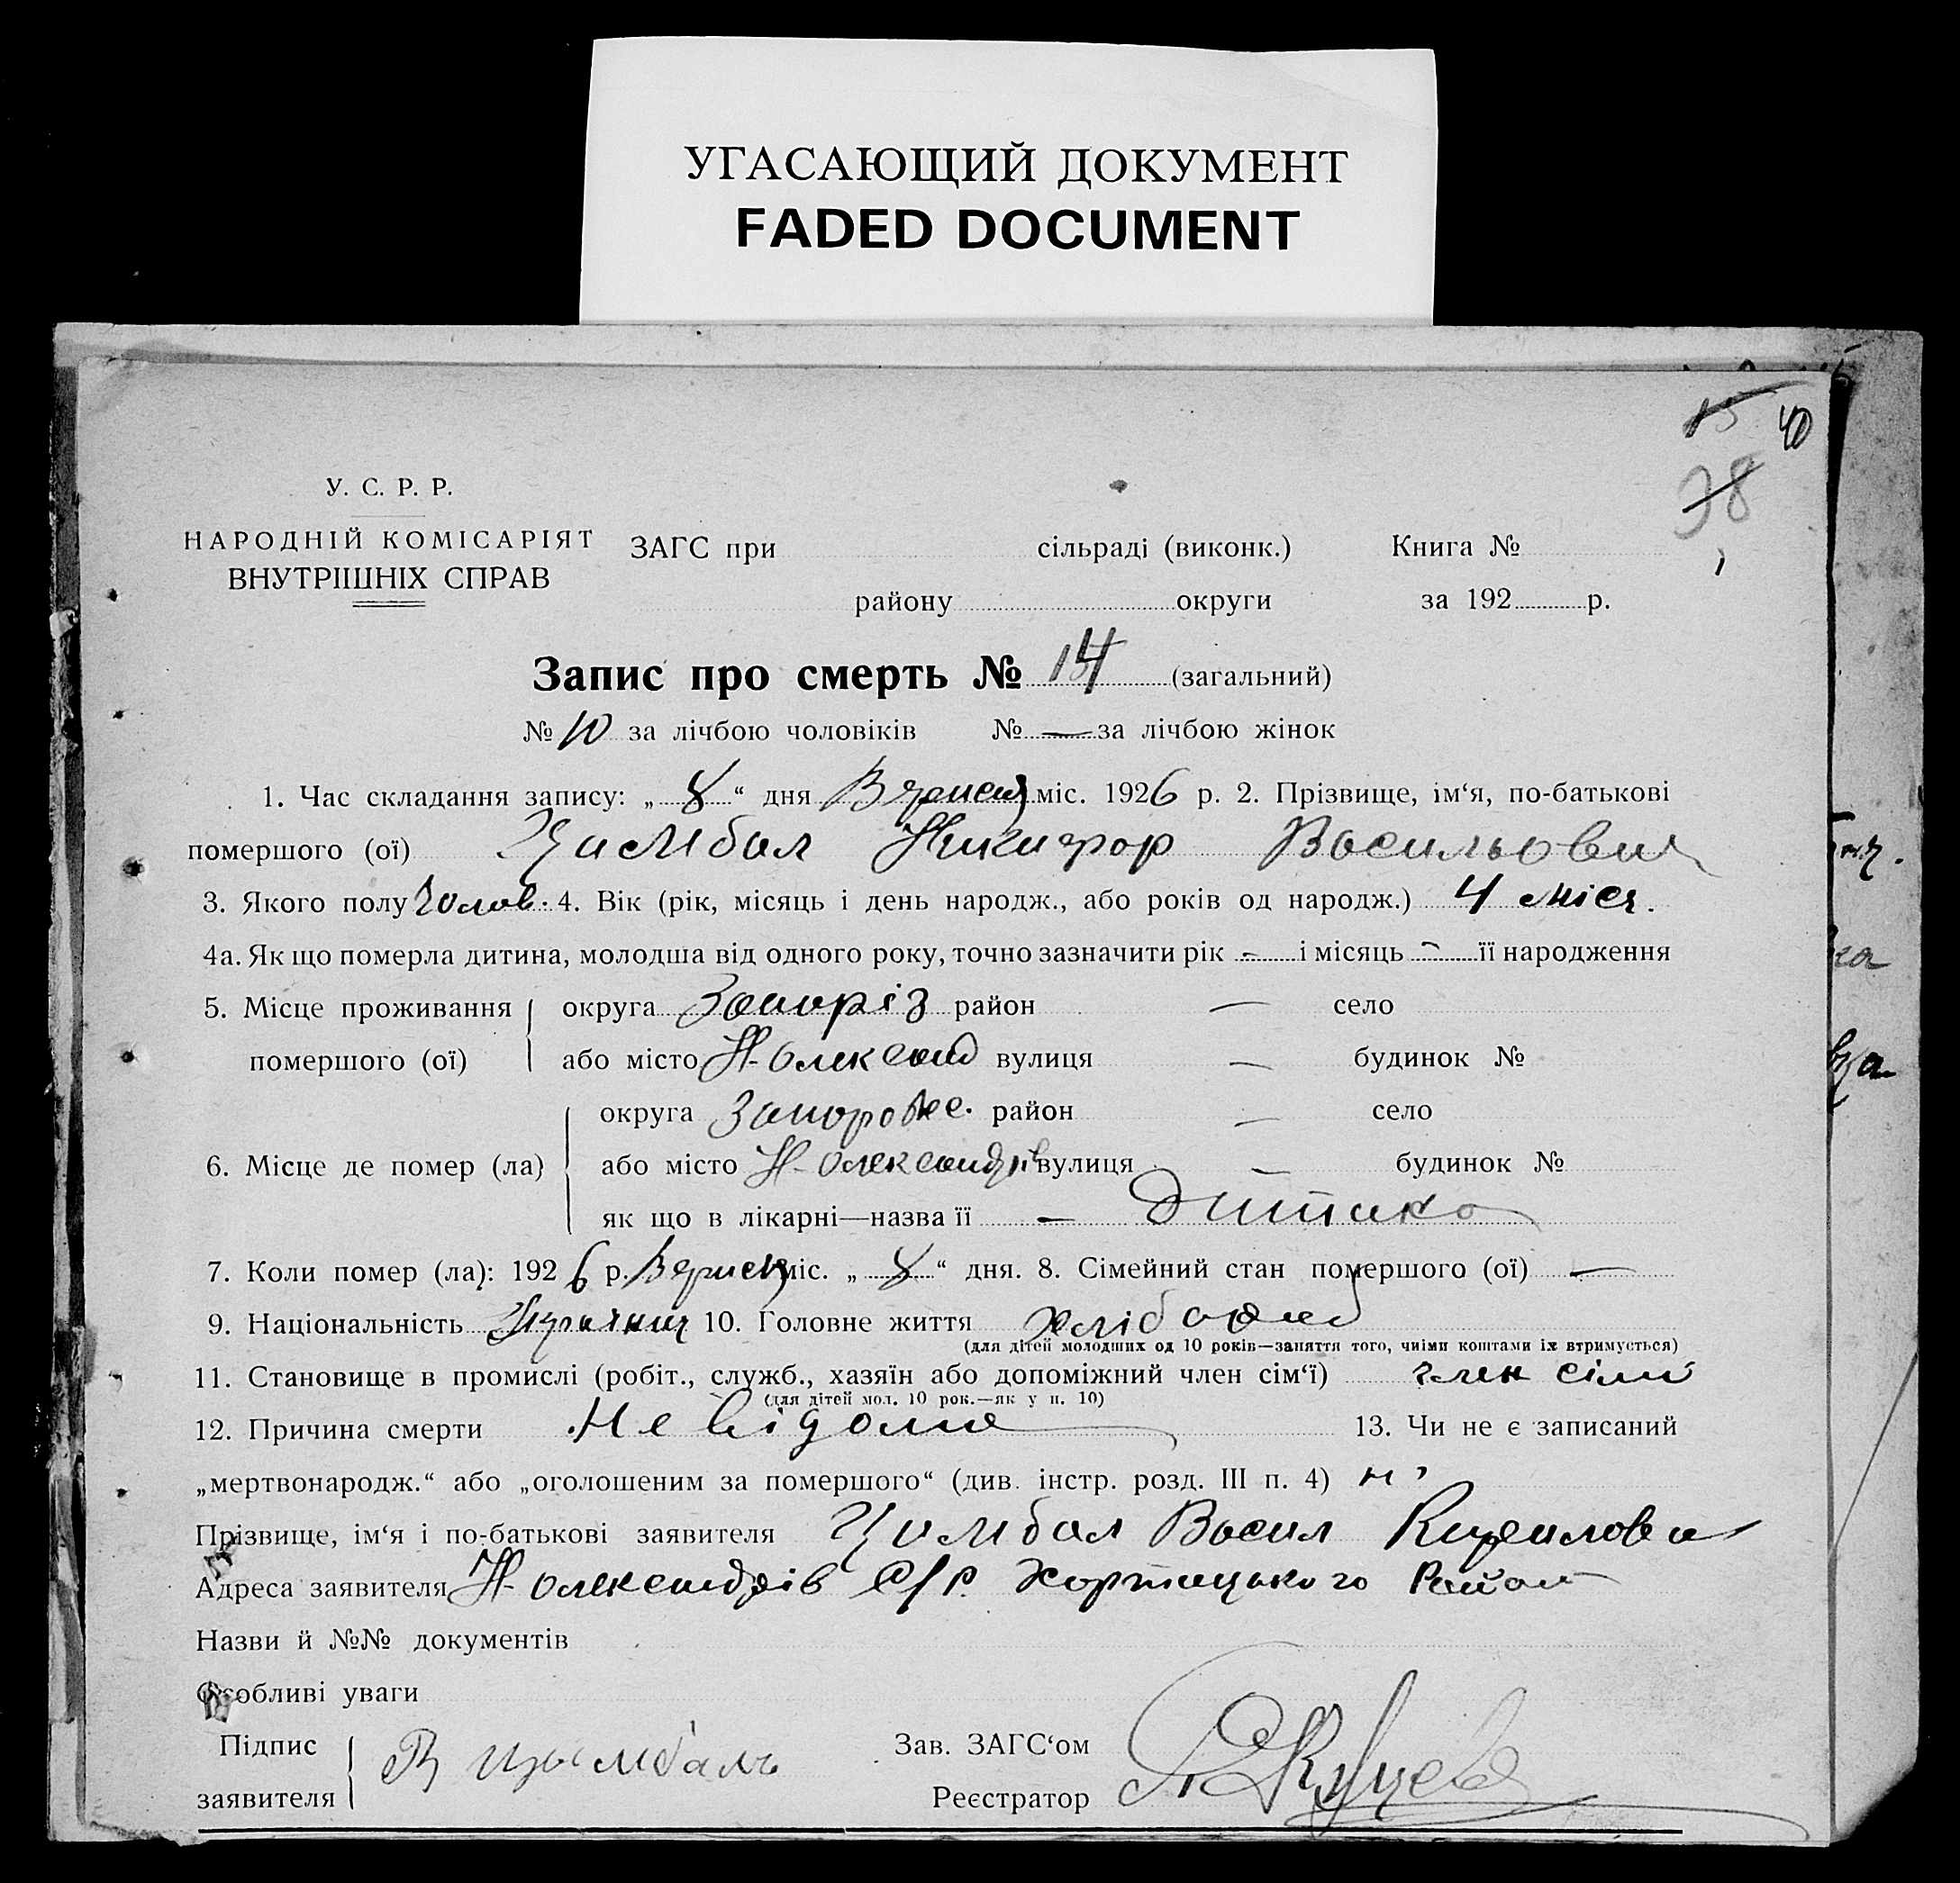 УГАСАЮЩИЙ ДОКУМЕНТ
FADED DOCUMENT
15 40
38
У. С. Р. Р.
НАРОДНІЙ КОМІСАРІЯТ
ВНУТРІШНІХ СПРАВ
ЗАГС при сільраді (виконк.) Книга №
району округи за 192 р.
Запис про смерть № 14 (загальний)
№ 10 за лічбою чоловіків № — за лічбою жінок
1. Час складання запису: „ 8 “ дня Вересня міс. 1926 р. 2. Прізвище, ім‘я, по-батькові
помершого (ої) Цимбал Никифор Васильович
3. Якого полу Чолов. 4. Вік (рік, місяць і день народж., або років од народж.) 4 міся.
4а. Як що померла дитина, молодша від одного року, точно зазначити рік – і місяць – її народження
5. Місце проживання округа Запоріз район — село
помершого (ої) або місто Н-Олександ вулиця — будинок №
округа Запорожс. район — село
6. Місце де помер (ла) або місто Н-Олександрів вулиця — будинок №
як що в лікарні—назва її — Дитина
7. Коли помер (ла): 1926 р. Вересня міс. „ 8 “ дня. 8. Сімейний стан помершого (ої) —
9. Національність 10. Головне життя хлібороб
(для дітей молодших од 10 років—заняття того, чиїми коштами їх втримується)
11. Становище в промислі (робіт., служб., хазяїн або допоміжний член сім‘ї) член сімї
(для дітей мол. 10 рок.—як у п. 10)
12. Причина смерти Невідома 13. Чи не є записаний
„мертвонародж.“ або „оголошеним за помершого“ (див. інстр. розд. III п. 4) ні
Прізвище, ім‘я і по-батькові заявителя Цимбал Васил Кирилови
Адреса заявителя Н-Олександрів С/Р. Хортицького Район
Назви й №№ документів
Особливі уваги
Підпис
заявителя В Цымбаль
Зав. ЗАГС‘ом
Реєстратор